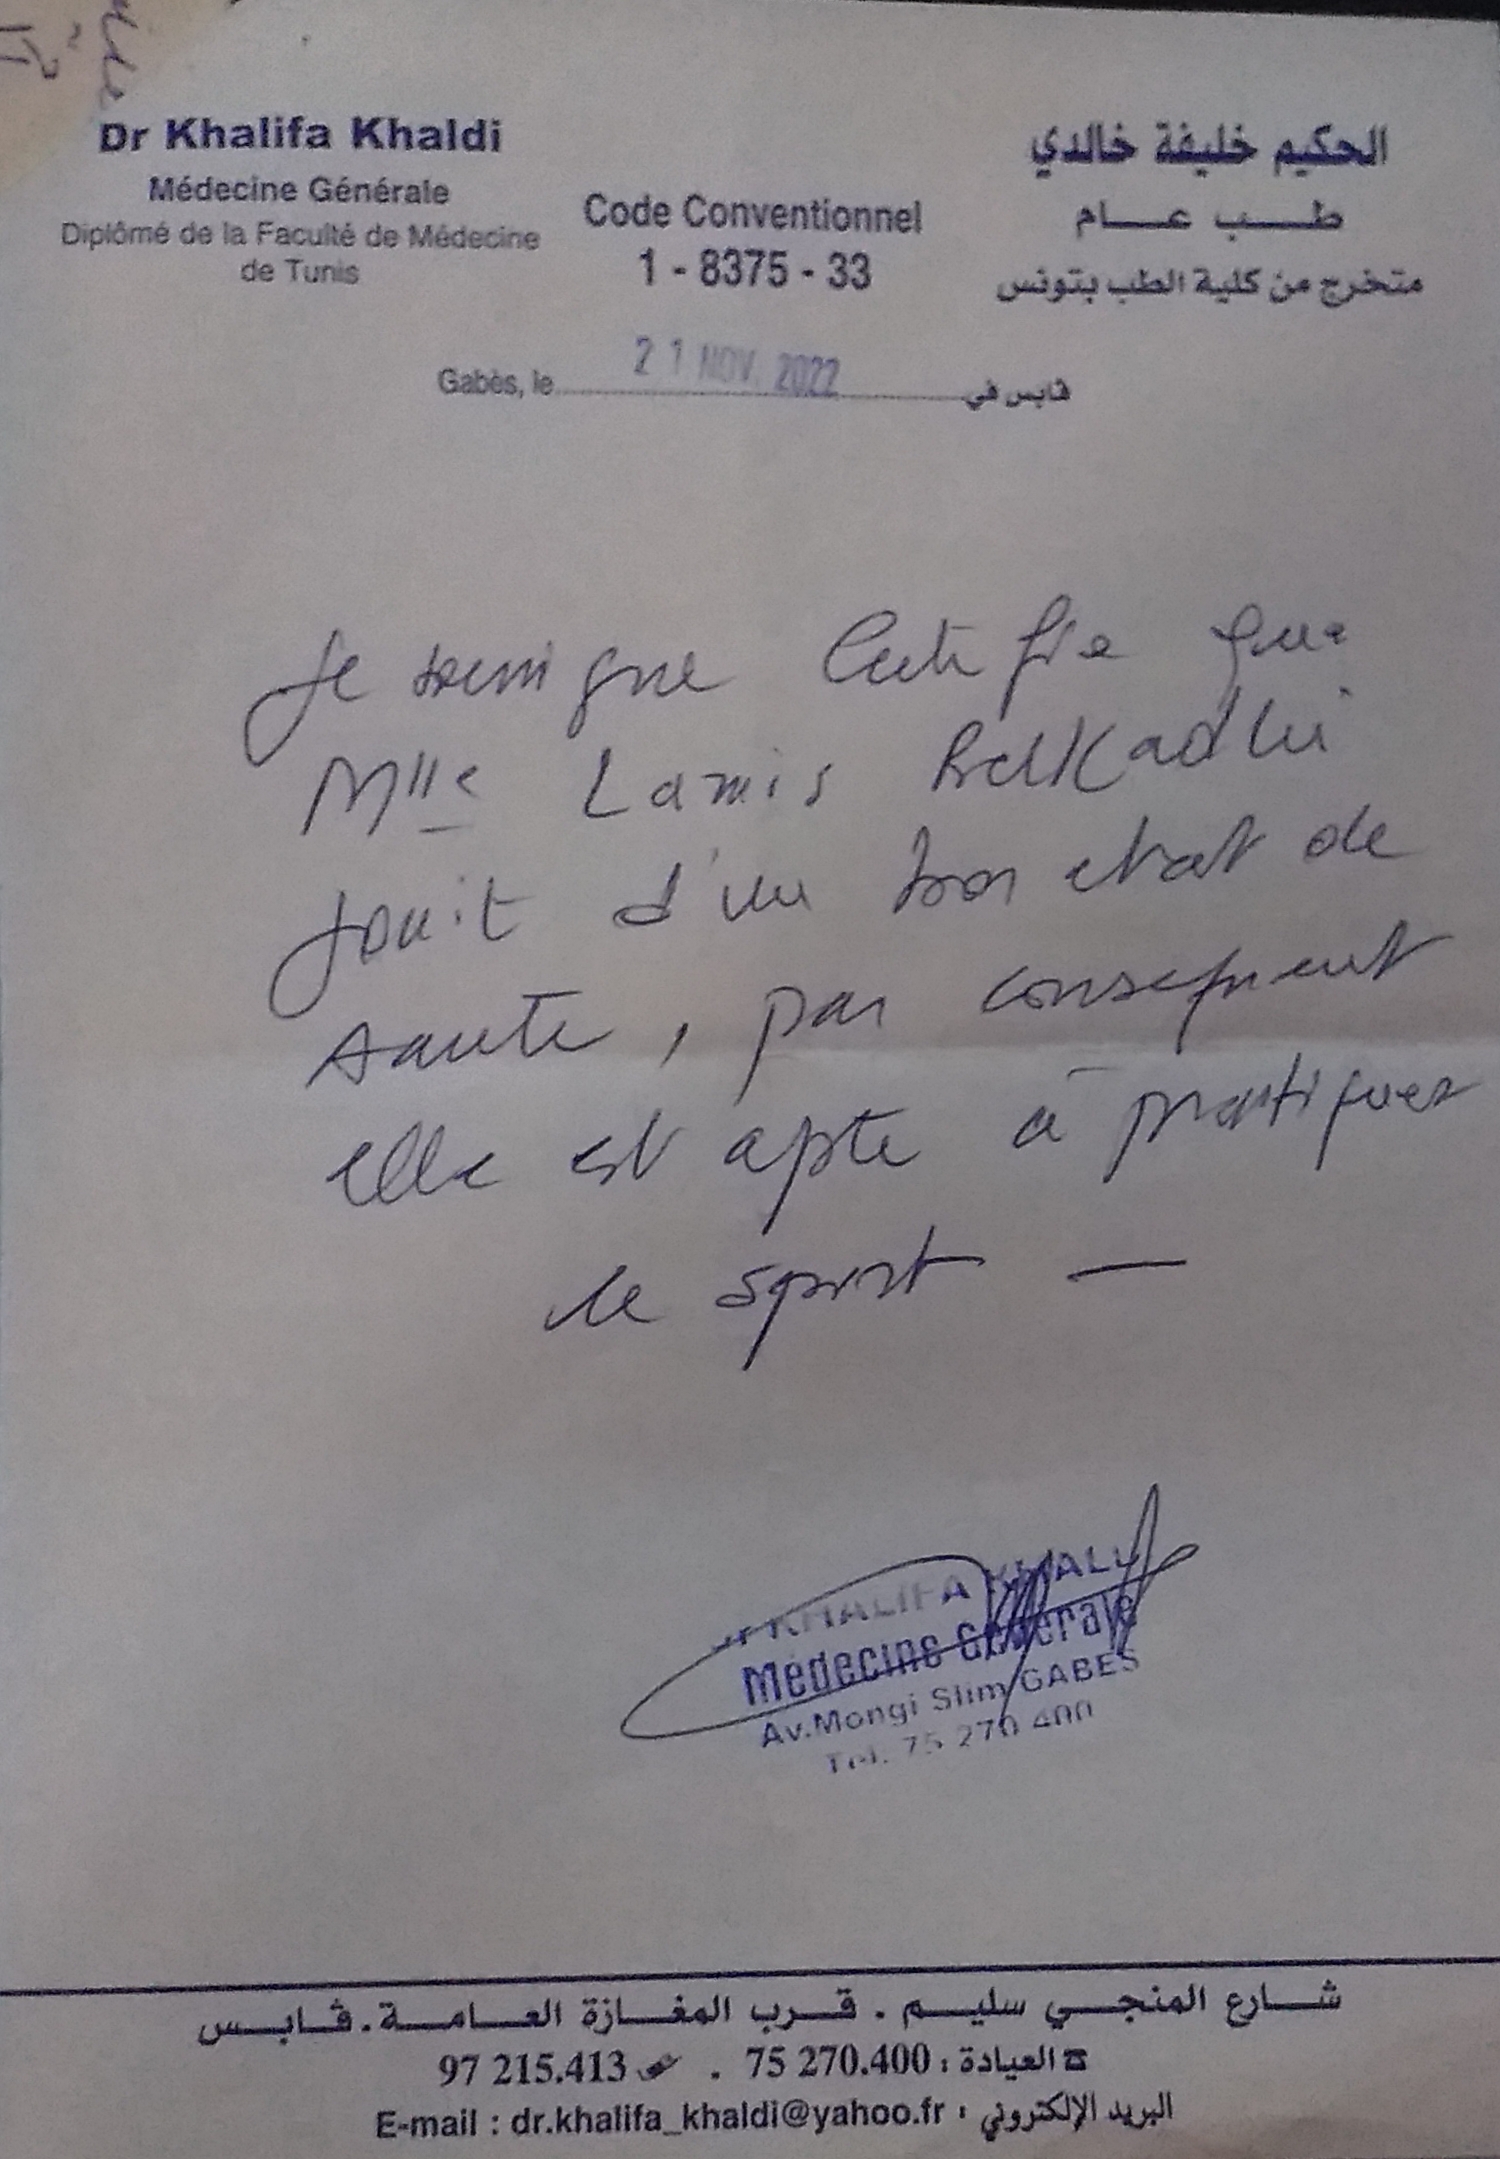 Dr Khalifa Khaldi
Médecine Générale
Diplômé de la Faculté de Médecine
de Tunis
Code Conventionnel
1 - 8375 - 33
الحكيم خليفة خالدي
طب عام
متخرج من كلية الطب بتونس
Gabès, le 21 NOV. 2022 ڤابس في
Je soussigne Certifie que
Mlle Lamis Belkadhi
jouit d'un bon etat de
sante, par consequent
elle est apte à pratiquer
le sport —
Dr KHALIFA KHALDI
Médecine Générale
Av.Mongi Slim GABES
Tel. 75 270 400
شارع المنجي سليم . قرب المغازة العامة . ڤابس
العيادة : 75 270.400 . 97 215.413
E-mail : dr.khalifa_khaldi@yahoo.fr : البريد الإلكتروني